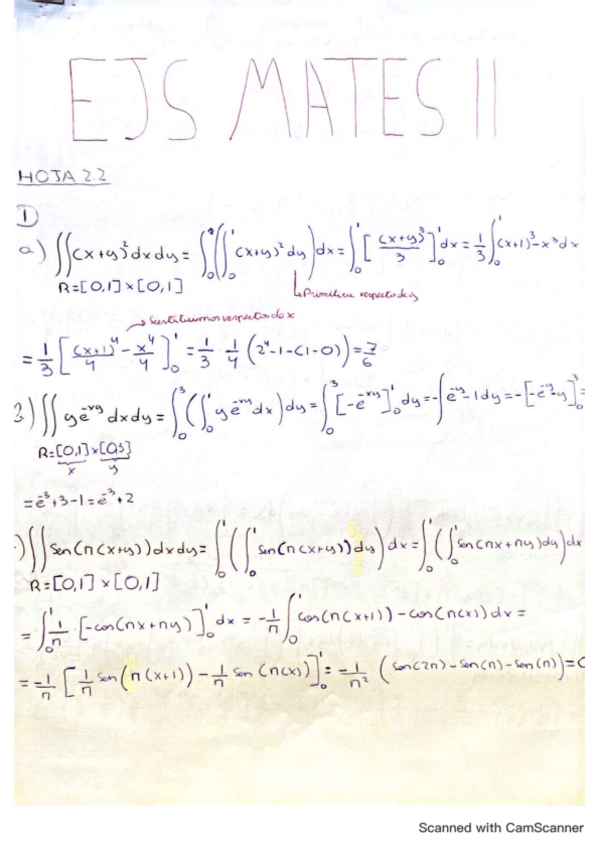 EJS MATES II
HOJA 2.2
①
a) ∬(x+y)²dxdy = ∫₀¹(∫₀¹(x+y)²dy)dx = ∫₀¹[(x+y)³/3]₀¹dx = 1/3∫₀¹(x+1)³-x³dx
R=[0,1]×[0,1]
Primitiva respecto de y
Sustituimos respecto de x
= 1/3[(x+1)⁴/4 - x⁴/4]₀¹ = 1/3 · 1/4 (2⁴-1-(1-0)) = 7/6
∬ye⁻ˣʸdxdy = ∫₀³(∫₀¹ye⁻ˣʸdx)dy = ∫₀³[-e⁻ˣʸ]₀¹dy = -∫e⁻ʸ-1dy = -[-e⁻ʸ-y]₀³ =
R=[0,1]×[0,3]
x y
= e⁻³+3-1 = e⁻³+2
)∬sen(π(x+y))dxdy = ∫₀¹(∫₀¹sen(π(x+y))dy)dx = ∫₀¹(∫₀¹sen(πx+πy)dy)dx
R=[0,1]×[0,1]
= ∫₀¹ 1/π · [-cos(πx+πy)]₀¹dx = -1/π∫₀¹cos(π(x+1))-cos(π(x))dx =
= -1/π[1/π sen(π(x+1)) - 1/π sen(π(x))]₀¹ = -1/π² (sen(2π)-sen(π)-sen(π)) = 0
Scanned with CamScanner